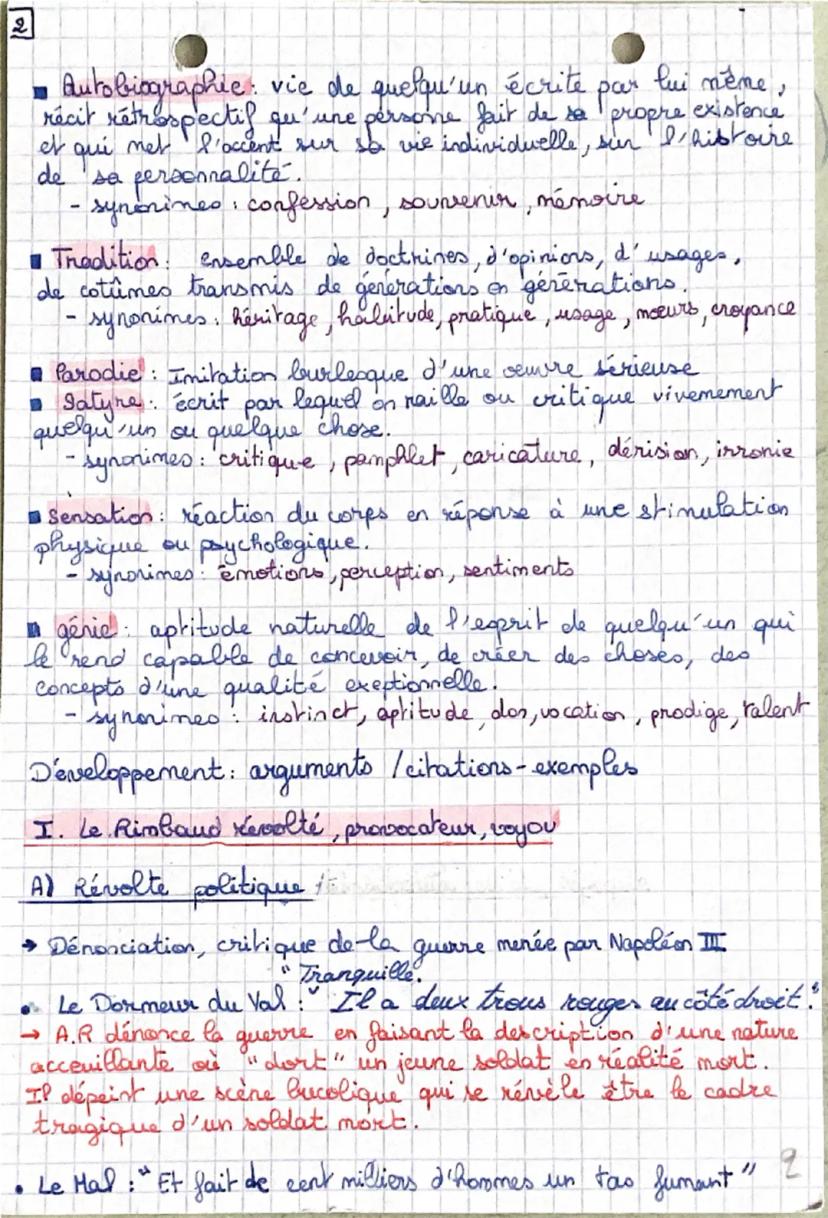 2
▪ Autobiographie : vie de quelqu'un écrite par lui même,
récit rétrospectif qu'une personne fait de sa propre existence
et qui met l'accent sur sa vie individuelle, sur l'histoire
de sa personnalité.
- synonimes : confession, souvenir, mémoire
▪ Tradition : ensemble de doctrines, d'opinions, d'usages,
de cotûmes transmis de générations en générations.
- synonimes : héritage, habitude, pratique, usage, mœurs, croyance
▪ Parodie : Imitation burlesque d'une oeuvre sérieuse
▪ Satyre : écrit par lequel on raille ou critique vivemement
quelqu'un ou quelque chose.
- synonimes : critique, pamphlet, caricature, dérision, irronie
▪ Sensation : réaction du corps en réponse à une stimulation
physique ou psychologique.
- synonimes : émotions, perception, sentiments
▪ génie : aptitude naturelle de l'esprit de quelqu'un qui
le rend capable de concevoir, de créer des choses, des
concepts d'une qualité exeptionnelle.
- synonimes : instinct, aptitude, don, vocation, prodige, talent
Développement : arguments / citations - exemples
I. Le Rimbaud révolté, provocateur, voyou
A) Révolte politique
→ Dénonciation, critique de la guerre menée par Napoléon III
"Tranquille.
• Le Dormeur du Val : " Il a deux trous rouges au côté droit."
→ A.R dénonce la guerre en faisant la description d'une nature
acceuillante où "dort" un jeune soldat en réalité mort.
Il dépeint une scène bucolique qui se révèle être le cadre
tragique d'un soldat mort.
• Le Mal : "Et fait de cent milliers d'hommes un tas fumant"
2